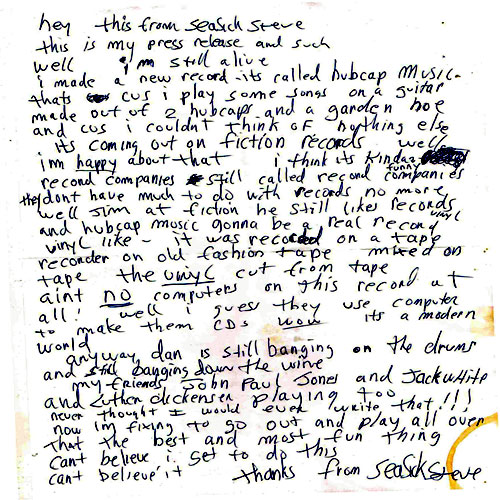 hey this from seasick steve
this is my press release and such
well i'm still alive
i made a new record its called hubcap music.
thats cus i play some songs on a guitar
made out of 2 hubcaps and a garden hoe
and cus i couldnt think of nothing else
its coming out on fiction records well
im happy about that i think its kinda funny
record companies still called record companies
they dont have much to do with records no more
well jim at fiction he still likes records
and hubcap music gonna be a real record vinyl
vinyl like - it was recorded on a tape
recorder on old fashion tape mixed on
tape the vinyl cut from tape
aint no computers on this record at
all! well i guess they use computer
to make them CDs wow its a modern
world
anyway, dan is still banging on the drums
and still banging down the wine
my friends John Paul Jones and Jack White
and Luther dickensen playing too
never thought I would ever write that!!!
now im fixing to go out and play all over
that the best and most fun thing
cant believe i get to do this
cant believe it thanks from seasick steve